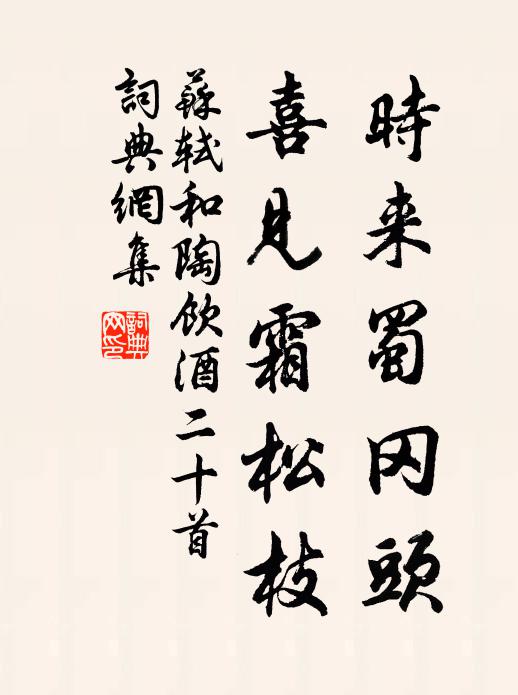 時来蜀冈頭
喜見霜松枝
蘇軾和陶飲酒二十首
詞典網集
詞典网印